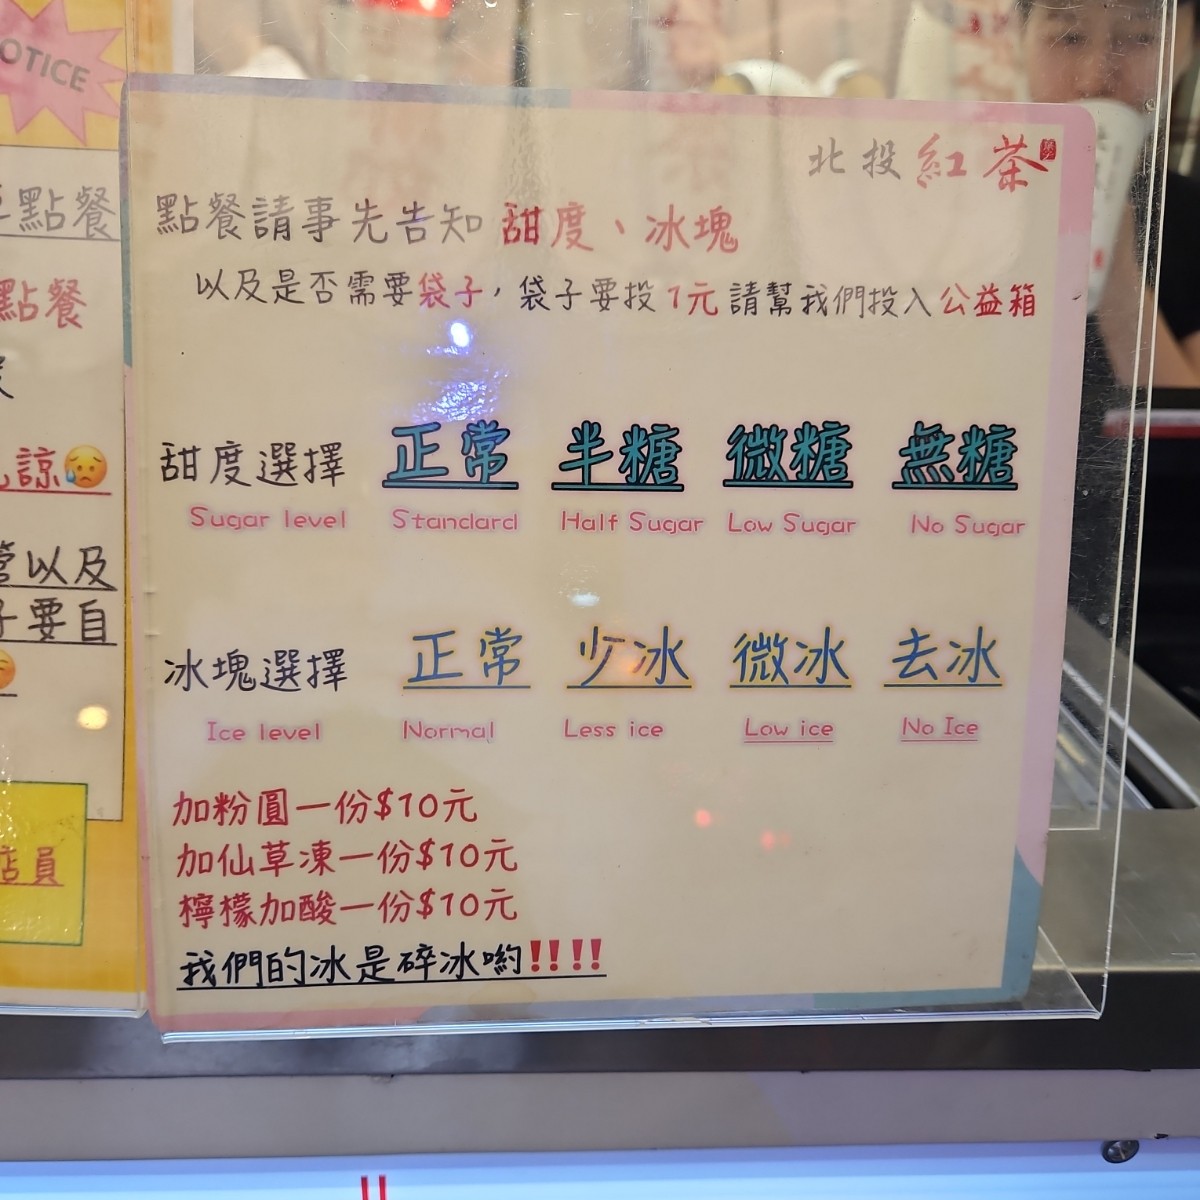 OTICE
點餐
點餐
諒
以及
要自
店員
北投紅茶
點餐請事先告知 甜度、冰塊
以及是否需要袋子，袋子要投1元 請幫我們投入公益箱
甜度選擇 正常 半糖 微糖 無糖
Sugar level Standard Half Sugar Low Sugar No Sugar
冰塊選擇 正常 少冰 微冰 去冰
Ice level Normal Less ice Low ice No Ice
加粉圓一份$10元
加仙草凍一份$10元
檸檬加酸一份$10元
我們的冰是碎冰喲‼️‼️